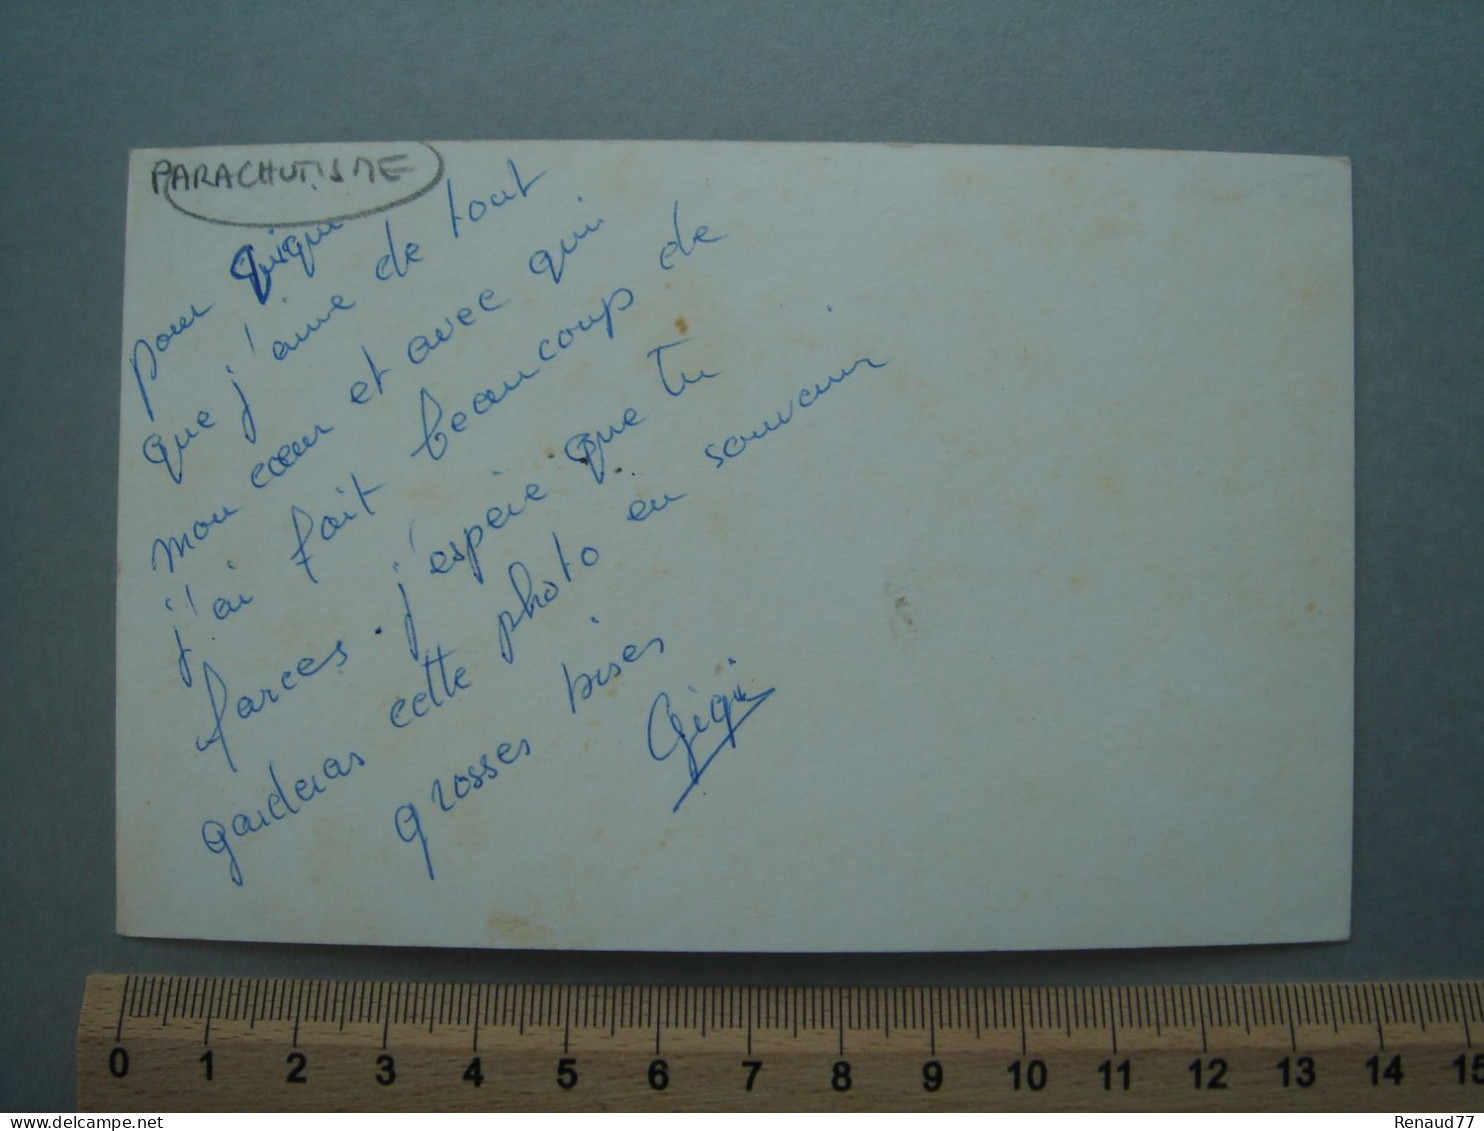 PARACHUTISME
pour
que j'aime de tout
mon cœur et avec qui
j'ai fait beaucoup de
farces. j'espère que tu
garderas cette photo en souvenir
grosses bises
Gigi
0 1 2 3 4 5 6 7 8 9 10 11 12 13 14 15
Renaud77